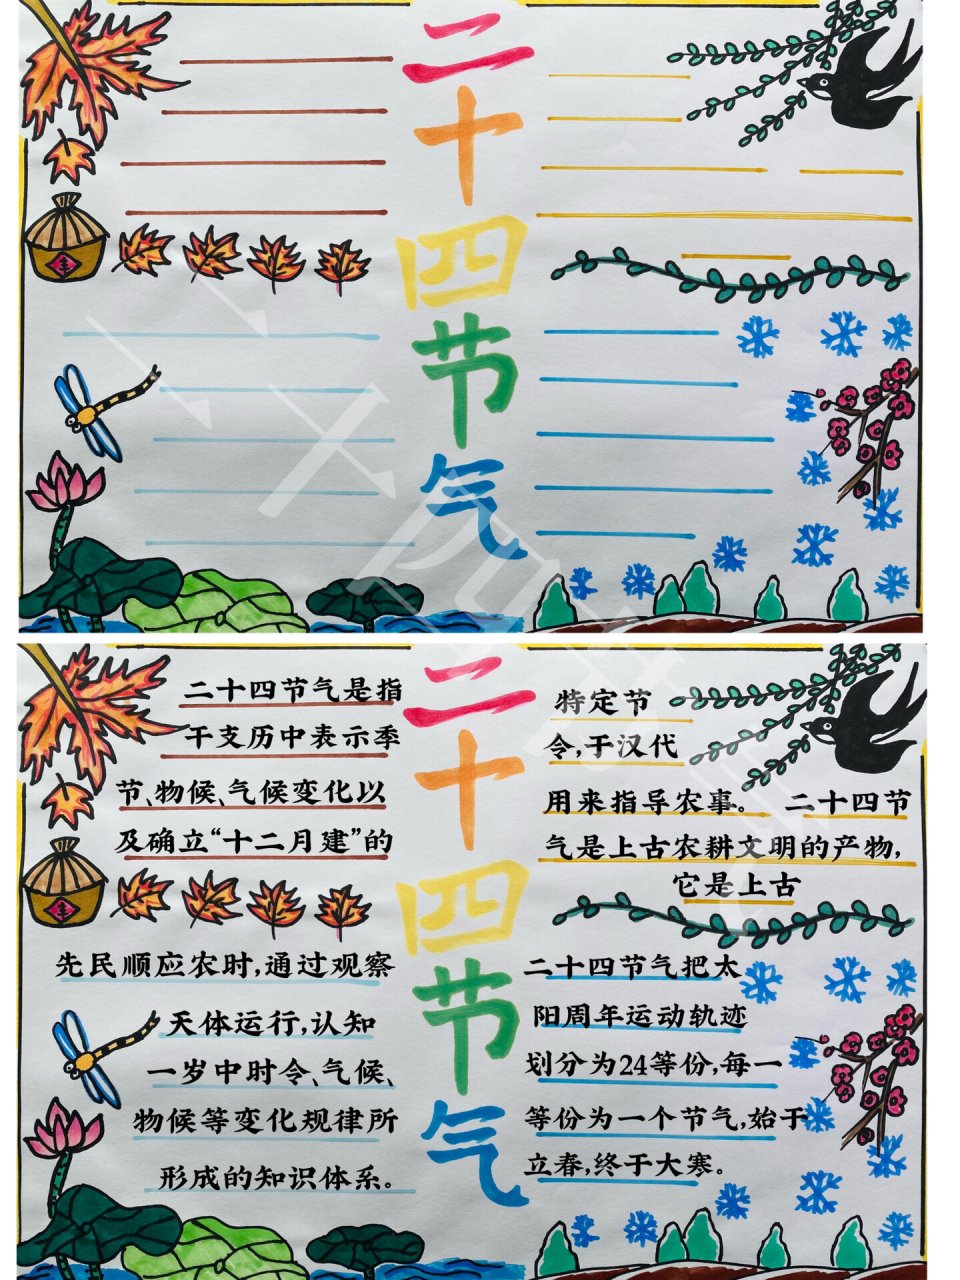 二
十
四
节
气
丰
二十四节气是指
干支历中表示季
节、物候、气候变化以
及确立“十二月建”的
特定节
令,于汉代
用来指导农事。 二十四节
气是上古农耕文明的产物,
它是上古
丰
先民顺应农时,通过观察
天体运行,认知
一岁中时令、气候、
物候等变化规律所
形成的知识体系。
二十四节气把太
阳周年运动轨迹
划分为24等份,每一
等份为一个节气,始于
立春,终于大寒。
二
十
四
节
气